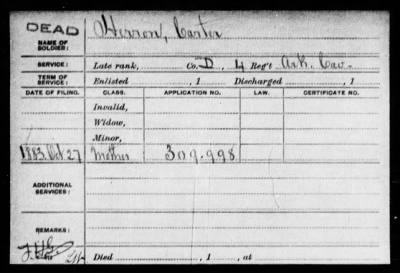 DEAD
NAME OF SOLDIER: Herron, Carter
SERVICE: Late rank, Co. D, 4 Reg't Ark. Cav.
TERM OF SERVICE: Enlisted , 1 Discharged , 1
DATE OF FILING. CLASS. APPLICATION NO. LAW. CERTIFICATE NO.
Invalid,
Widow,
Minor,
1883, Oct 27 Mother 309.998
ADDITIONAL SERVICES:
REMARKS:
Died , 1 , at